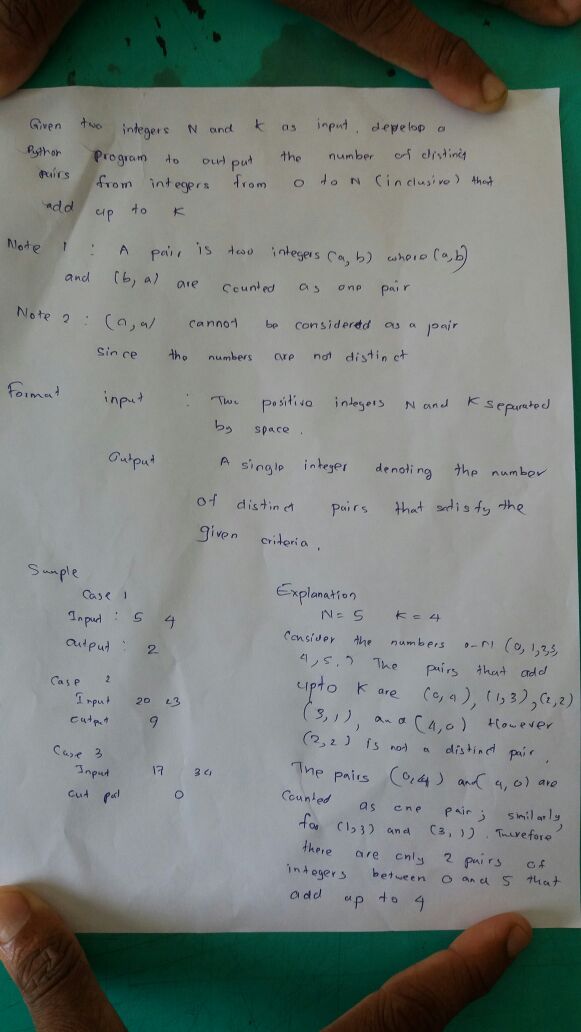 Given two integers N and K as input, develop a
Python program to output the number of distinct
pairs from integers from 0 to N (inclusive) that
add up to K
Note 1 : A pair is two integers (a, b) where (a, b)
and (b, a) are counted as one pair
Note 2 : (a, a) cannot be considered as a pair
since the numbers are not distinct
Format input : Two positive integers N and K separated
by space.
Output A single integer denoting the number
of distinct pairs that satisfy the
given criteria.
Sample
Case 1
Input : 5 4
Output : 2
Case 2
Input 20 23
Output 9
Case 3
Input 17 34
Out put 0
Explanation
N= 5 K = 4
Consider the numbers 0-N (0, 1, 2, 3,
4, 5.) The pairs that add
upto K are (0, 4), (1, 3), (2, 2)
(3, 1), and (4, 0) However
(2, 2) is not a distinct pair.
The pairs (0, 4) and (4, 0) are
counted as one pair; similarly
for (1, 3) and (3, 1). Therefore
there are only 2 pairs of
integers between 0 and 5 that
add up to 4